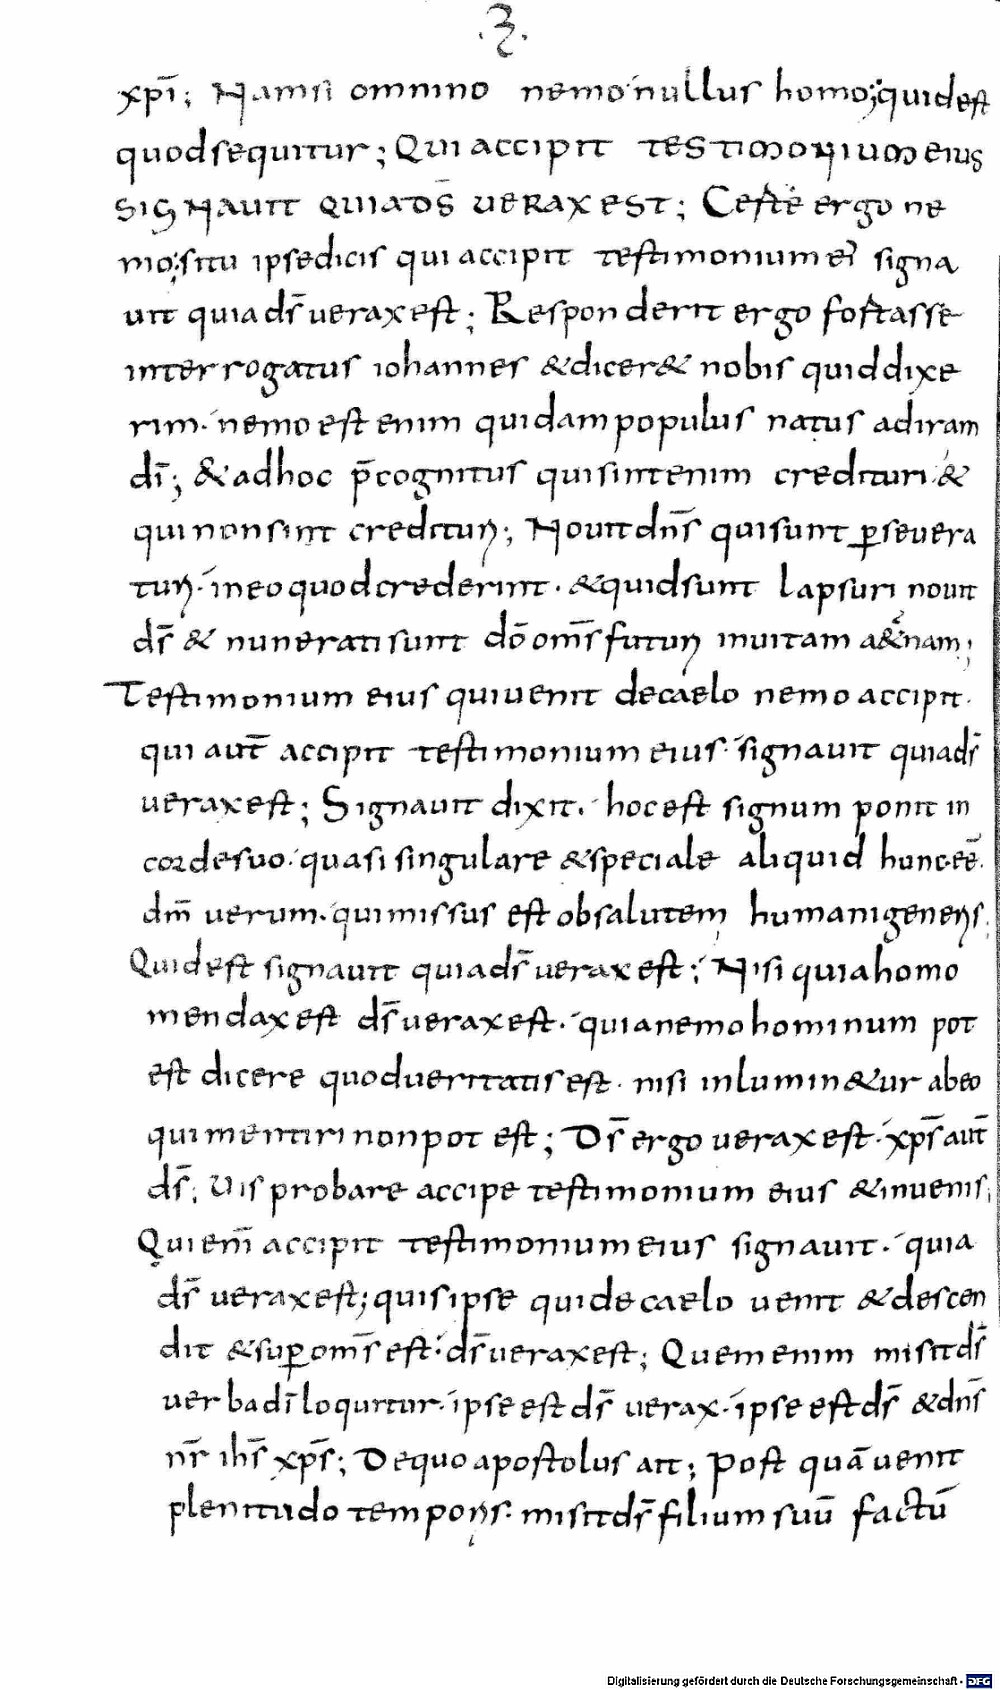 .3.
xp̄i; Nam si omnino nemo nullus homo; quid est
quod sequitur; QUI ACCIPIT TESTIMONIUM EIUS
SIGNAUIT QUIA DS̄ UERAX EST; Certe ergo ne
mo; si tu ipse dicis qui accipit testimonium ei signa
uit quia ds̄ uerax est; Respon derit ergo fortasse
interrogatus iohannes & dicer& nobis quid dixe
rim. nemo est enim quidam populus natus ad iram
dī; & ad hoc p̄cognitus qui sint enim credituri &
qui non sint credituri; Nouit dns̄ qui sunt ꝑseuera
turi. in eo quod crederint. & quid sunt lapsuri nouit
ds̄ & nunerati sunt dō oms̄ futuri in uitam a&nam;
Testimonium eius qui uenit de caelo nemo accipit.
qui aut̄ accipit testimonium eius. signauit quia ds̄
uerax est; Signauit dixit. hoc est signum ponit in
corde suo. quasi singulare & speciale aliquid hunc eē.
dm̄ uerum. qui missus est ob salutem humani generis;
Quid est signauit quia ds̄ uerax est; Nisi quia homo
mendax est ds̄ uerax est. quia nemo hominum pot
est dicere quod ueritatis est. nisi inlumin&ur ab eo
qui mentiri non pot est; Ds̄ ergo uerax est. xps̄ aut̄
ds̄; Uis probare accipe testimonium eius & inuenis;
Qui enī accipit testimonium eius signauit. quia
ds̄ uerax est; quis ipse qui de caelo uenit & descen
dit & suꝑ oms̄ est. ds̄ uerax est; Quem enim misit ds̄
uerba dī loquitur. ipse est ds̄ uerax. ipse est ds̄ & dns̄
nr̄ ihs̄ xps̄; De quo apostolus ait; Post quā uenit
plenitudo temporis. misit ds̄ filium suū factū
Digitalisierung gefördert durch die Deutsche Forschungsgemeinschaft - DFG